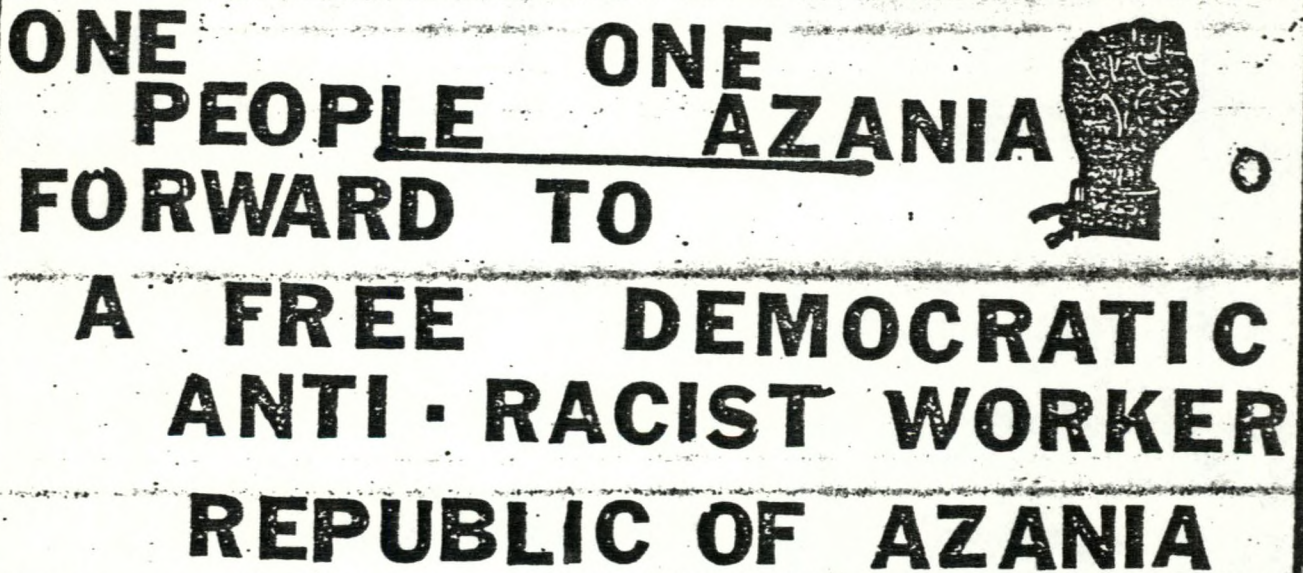 ONE ONE
PEOPLE AZANIA
FORWARD TO
A FREE DEMOCRATIC
ANTI-RACIST WORKER
REPUBLIC OF AZANIA